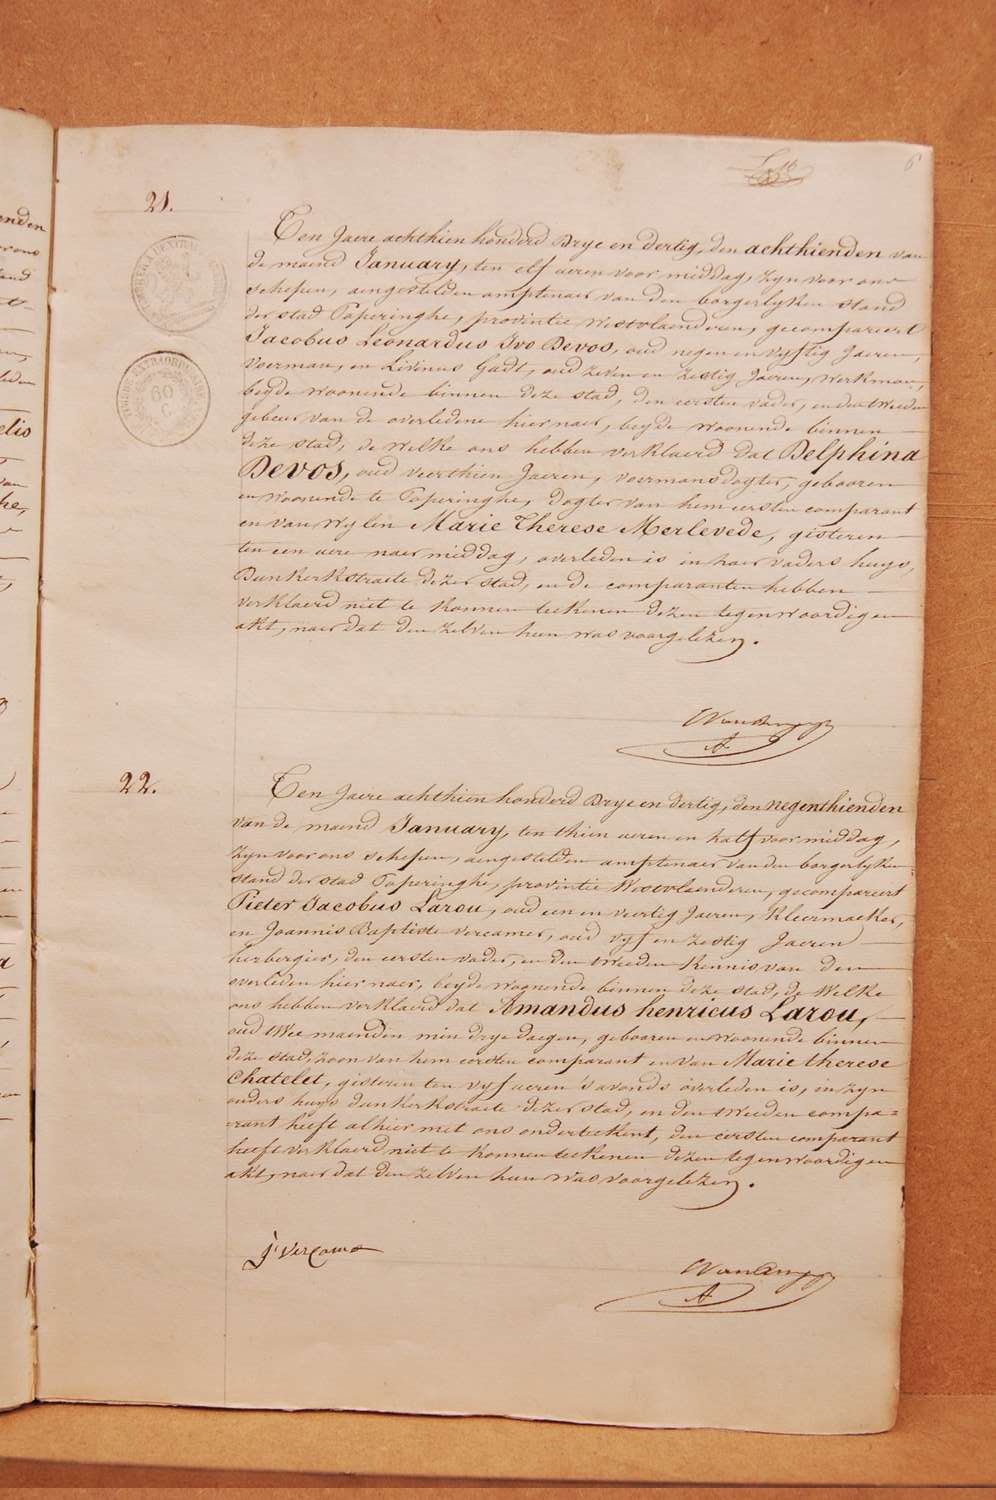 6
21.
Ten Jaere achthien honderd Drye en dertig, den achthienden van
de maend January, ten elf aeren voor middag, zyn voor ons
schepen, aengestelden amptenaer van den borgerlyken stand
der stad Poperinghe, provintie Westvlaenderen, gecompareert
Jacobus Leonardus Ivo Devos, oud negen en vyftig Jaeren,
voerman, en Livinus Gadt, oud zeven en zestig Jaeren, werkman,
beyde woonende binnen deze stad, den eersten vader, en den tweeden
gebuer van de overledene hier naer, beyde woonende binnen
deze stad, de welke ons hebben verklaerd dat Delphina
Devos, oud veerthien Jaeren, voermansdogter, gebooren
en woonende te Poperinghe, dogter van hem eersten comparant
en van wylen Marie Therese Merlevede, gisteren
ten een uere naer middag, overleden is in haer vaders huys,
Dunkerkstraete dezer stad, en de comparanten hebben
verklaerd niet te konnen teekenen dezen tegenwoordigen
akt, naer dat den zelven hun was voorgelezen.
22.
Ten Jaere achthien honderd Drye en dertig, den negenthienden
van de maend January, ten thien aeren en half voor middag,
zyn voor ons schepen, aengestelden amptenaer van den borgerlyken
stand der stad Poperinghe, provintie Westvlaenderen, gecompareert
Pieter Jacobus Larou, oud een en veertig Jaeren, kleermaeker,
en Joannis Baptiste Vercamer, oud vyf en zestig Jaeren
herbergier, den eersten vader, en den tweeden kennis van den
overleden hier naer, beyde woonende binnen deze stad, de welke
ons hebben verklaerd dat Amandus henricus Larou,
oud twee maenden min drye daegen, gebooren en woonende binnen
deze stad, zoon van hem eersten comparant en van Marie therese
Chatelet, gisteren ten vyf aeren s'avonds overleden is, in zyn
ouders huys dunkerkstraete dezer stad, en den tweeden compa=
=rant heeft alhier met ons onderteekent, den eersten comparant
heeft verklaerd niet te konnen teekenen dezen tegenwoordigen
akt, naer dat den zelven hun was voorgelezen.